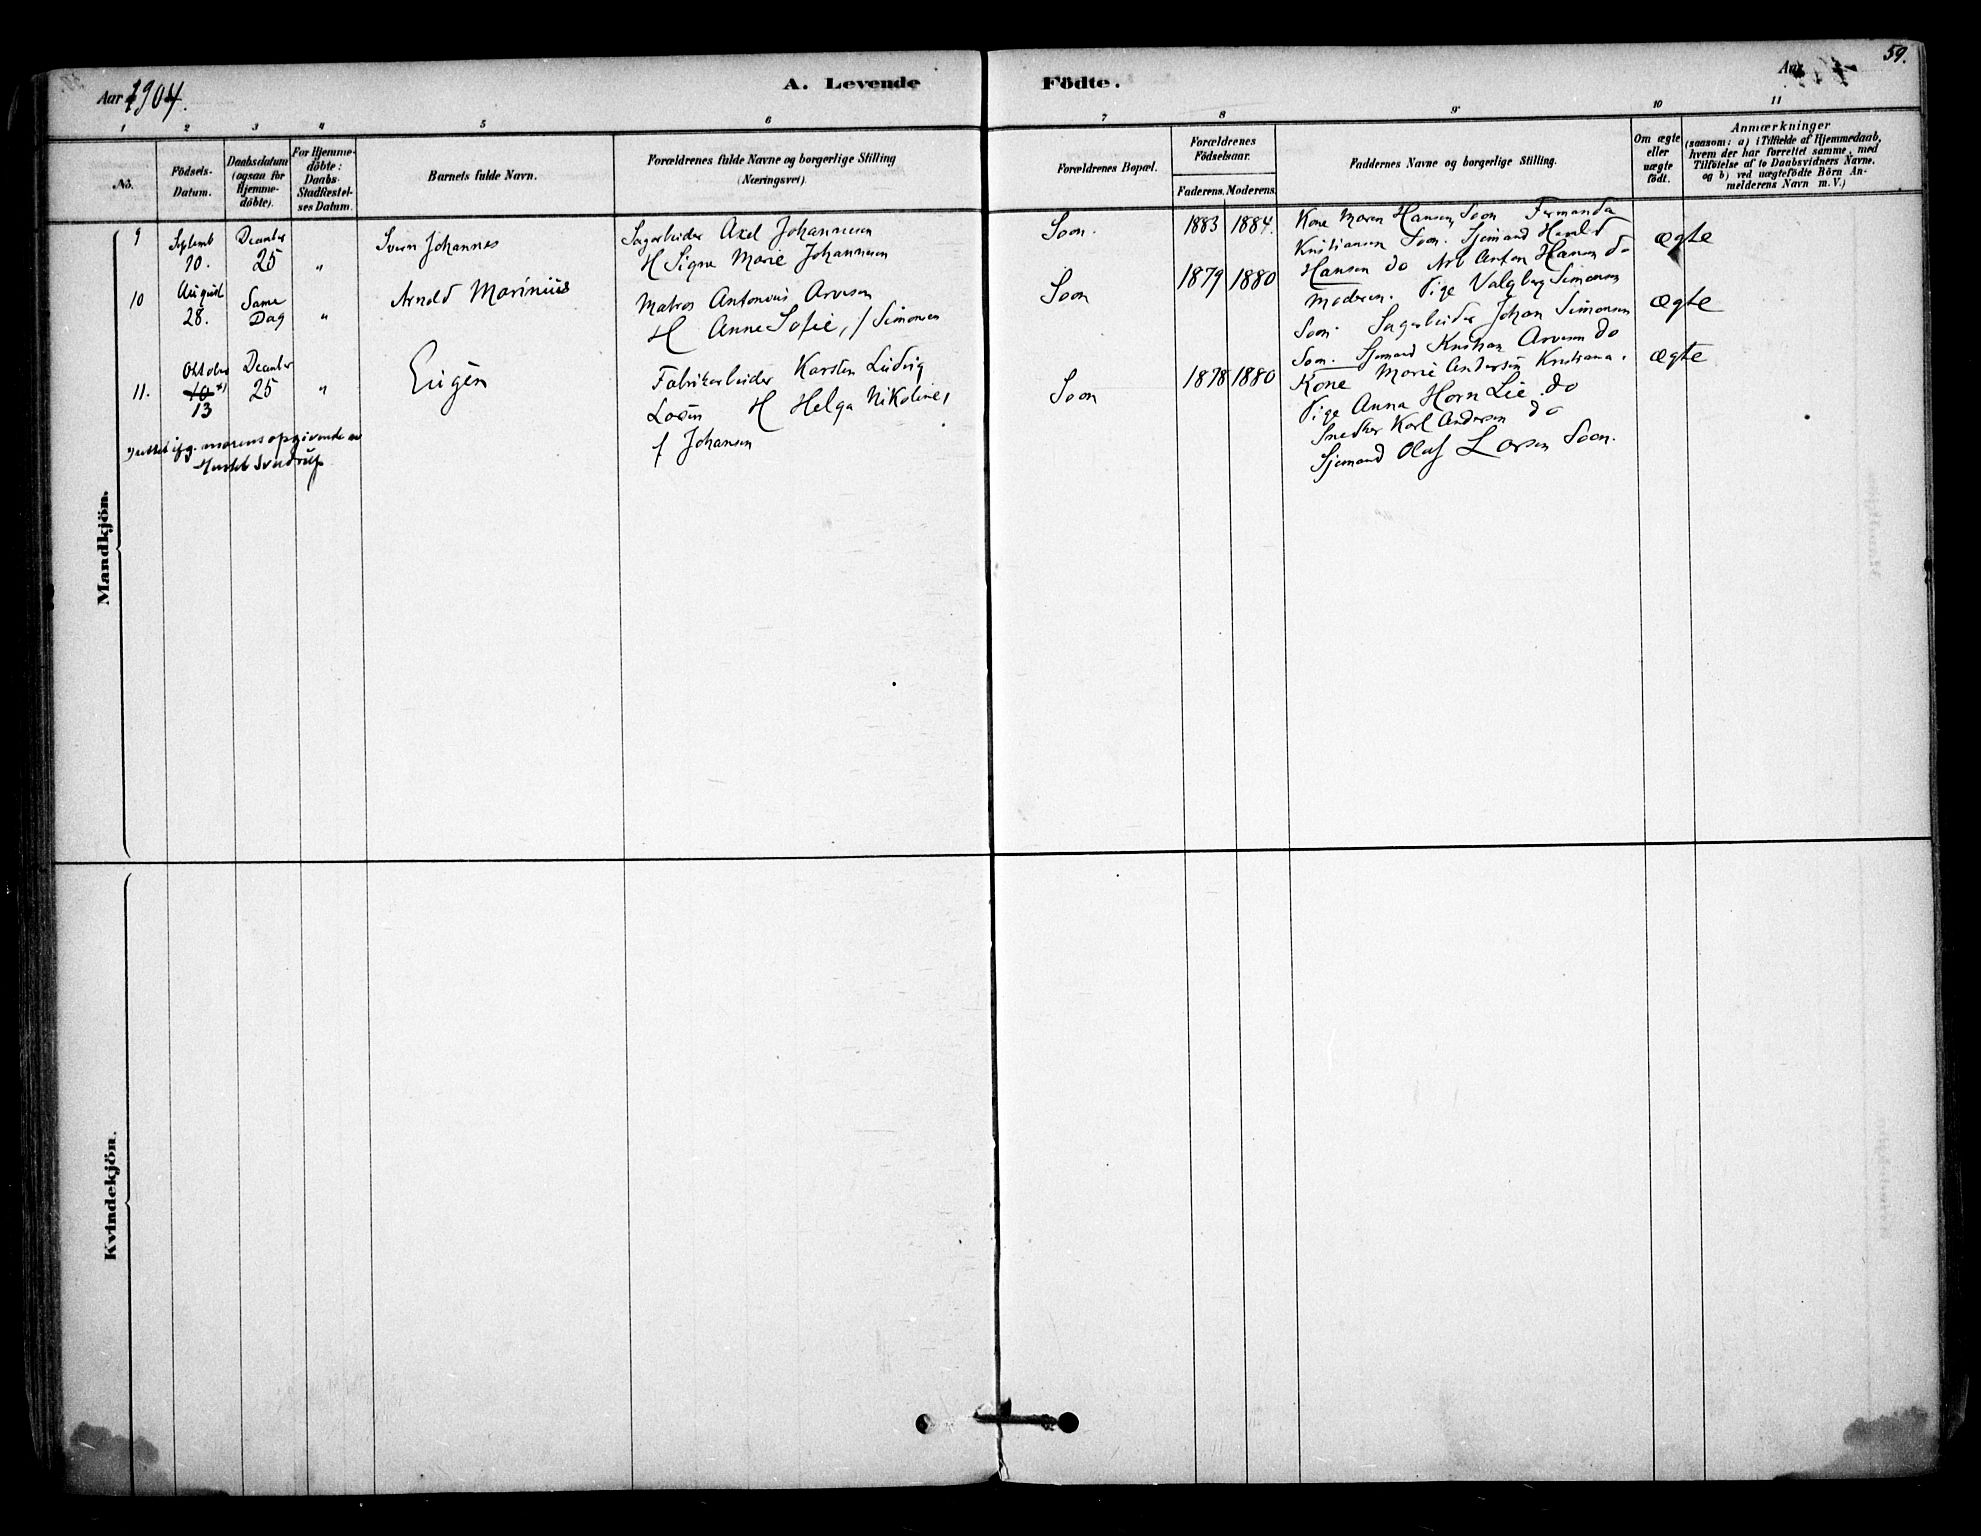 59.
Aar 1904.
A. Levende Födte.
Aar
1 2 3 4 5 6 7 8 9 10 11
No.
Födsels-Datum.
Daabsdatum (ogsaa for Hjemme-döbte).
For Hjemme-döbte: Daabs-Stadfæstel-ses Datum.
Barnets fulde Navn.
Forældrenes fulde Navne og borgerlige Stilling
(Næringsvei).
Forældrenes Bopæl.
Forældrenes Födselsaar.
Faderens. Moderens.
Faddernes Navne og borgerlige Stilling.
Om ægte eller uægte födt.
Anmærkninger
(saasom: a) i Tilfælde af Hjemmedaab,
hvem der har forrettet samme, med
Tilföielse af to Daabsvidners Navne.
og b) ved uægtefödte Börn An-
melderens Navn m.V.)
Mandkjön.
9
Septemb
10.
December
25
"
Svern Johannes
Sagarbeider Axel Johannesen
H Signe Marie Johannesen
Soon.
1883 1884.
Kone Maren Hansen, Soon Fernanda
Kristiansen Soon. Sjømand Harald
Hansen do Arb Anton Hansen do
ægte
10
August
28.
Same
Dag
"
Arnold Marinius
Matros Antonius Arvesen
H Anne Sofie, f Simonsen
Soon
1879 1880
Moderen. Pige Valgborg Simonsen
Soon. Sagarbeider Johan Simonsen
Soon. Sjømand Kristian Arvesen do
ægte
11.
Oktober
10 *)
13
December
25
"
Eugén
Fabrikarbeider Karsten Ludvig
Larsen H Helga Nikoline,
f Johansen
Soon
1878 1880
Kone Marie Andersen Kristiania.
Pige Anna Horn Lie do
Snedker Karl Andersen do
Sjømand Olaf Larsen Soon.
ægte
*) rettet ifg. morens opgivende av
Kvindekjön.